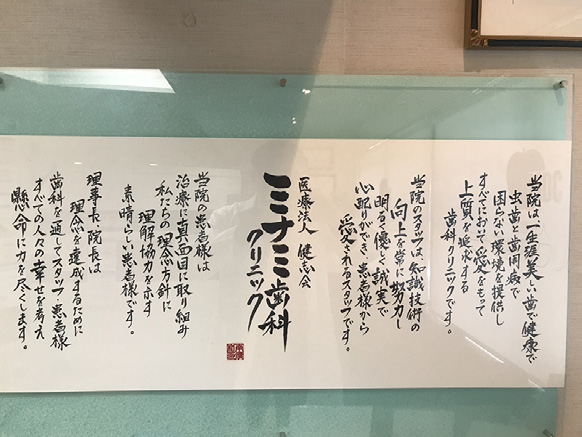 当院は一生涯美しい歯で健康で
虫歯と歯周病で
困らない環境を提供し
すべてにおいて愛をもって
上質を追求する
歯科クリニックです。
当院のスタッフは、知識技術の
向上を常に努力し
明るく優しく誠実で
心配りができ、患者様から
愛されるスタッフです。
医療法人 健志会
ミナミ歯科
クリニック
当院の患者様は
治療に真面目に取り組み
私たちの理念や方針に
理解協力を示す
素晴らしい患者様です。
理事長・院長は
理念を達成するために
歯科を通してスタッフ・患者様
すべての人々の幸せを考え
懸命に力を尽くします。